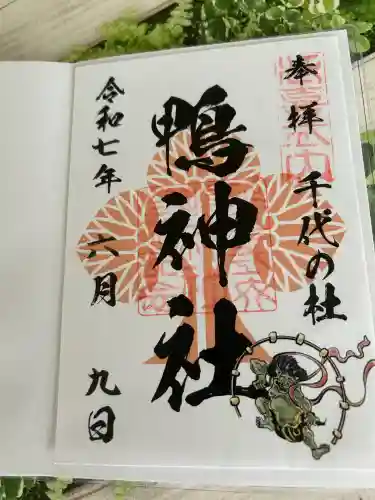 奉拝
千代の杜
鴨神社
令和七年
六月
九日